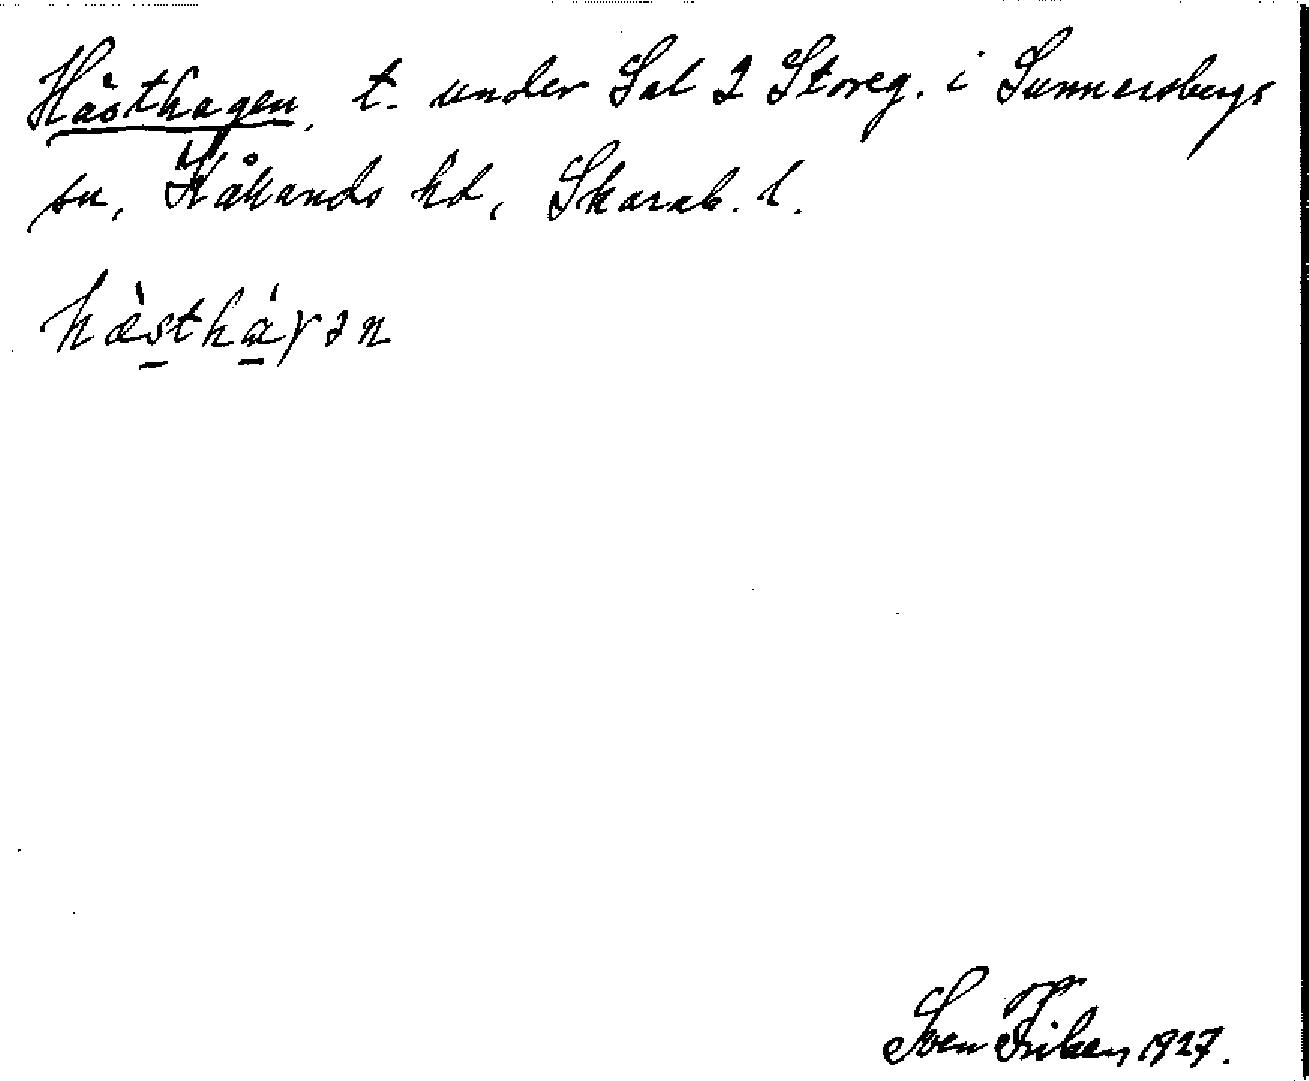 Hästhagen, t. under Sal 2 Storeg. i Sunnersbergs
sn, Kållands hd, Skarab. l.
hæ̀sthá̱γən
Sven Friben 1927.